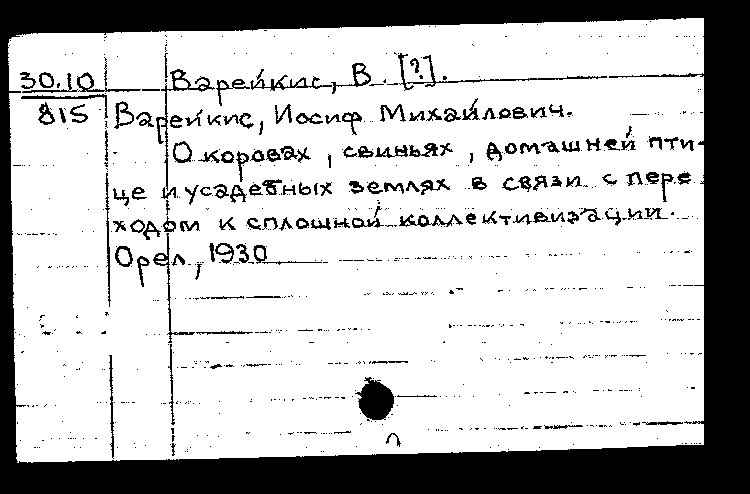 30.10 Варейкис, В. [?].
815 Варейкис, Иосиф Михайлович.
О коровах, свиньях, домашней пти-
це и усадебных землях в связи с пере
ходом к сплошной коллективизации.
Орел, 1930